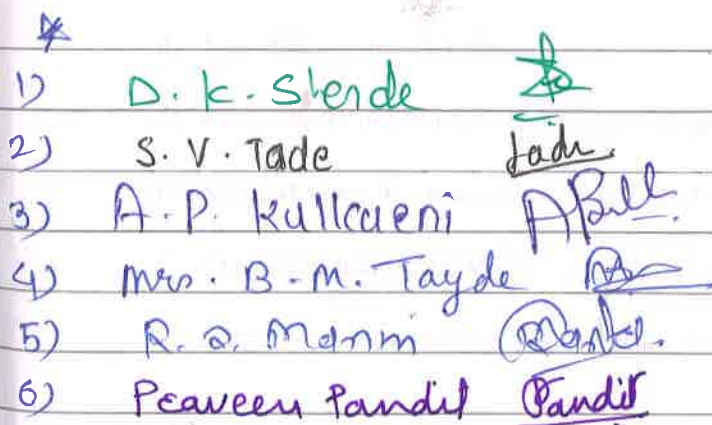 1) D. K. Shende
2) S. V. Tade Tade
3) A. P. Kulkarni
4) Mrs. B. M. Tayde
5) R. D.
6) Praveen Pandit Pandit